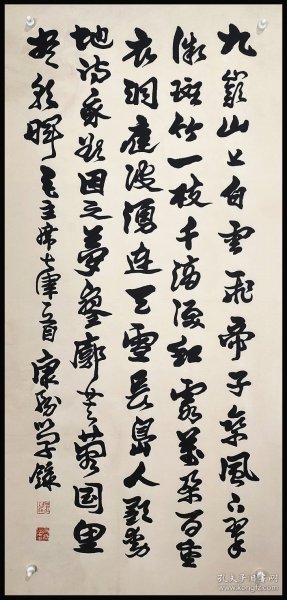 九嶷山上白雲飛帝子乘風下翠
微斑竹一枝千滴淚紅霞萬朵百重
衣洞庭波湧連天雪長島人歌動
地詩我欲因之夢寥廓芙蓉国里
盡朝暉 毛主席七律一首 康 学錄
孔夫子旧书网
www.kongfz.com